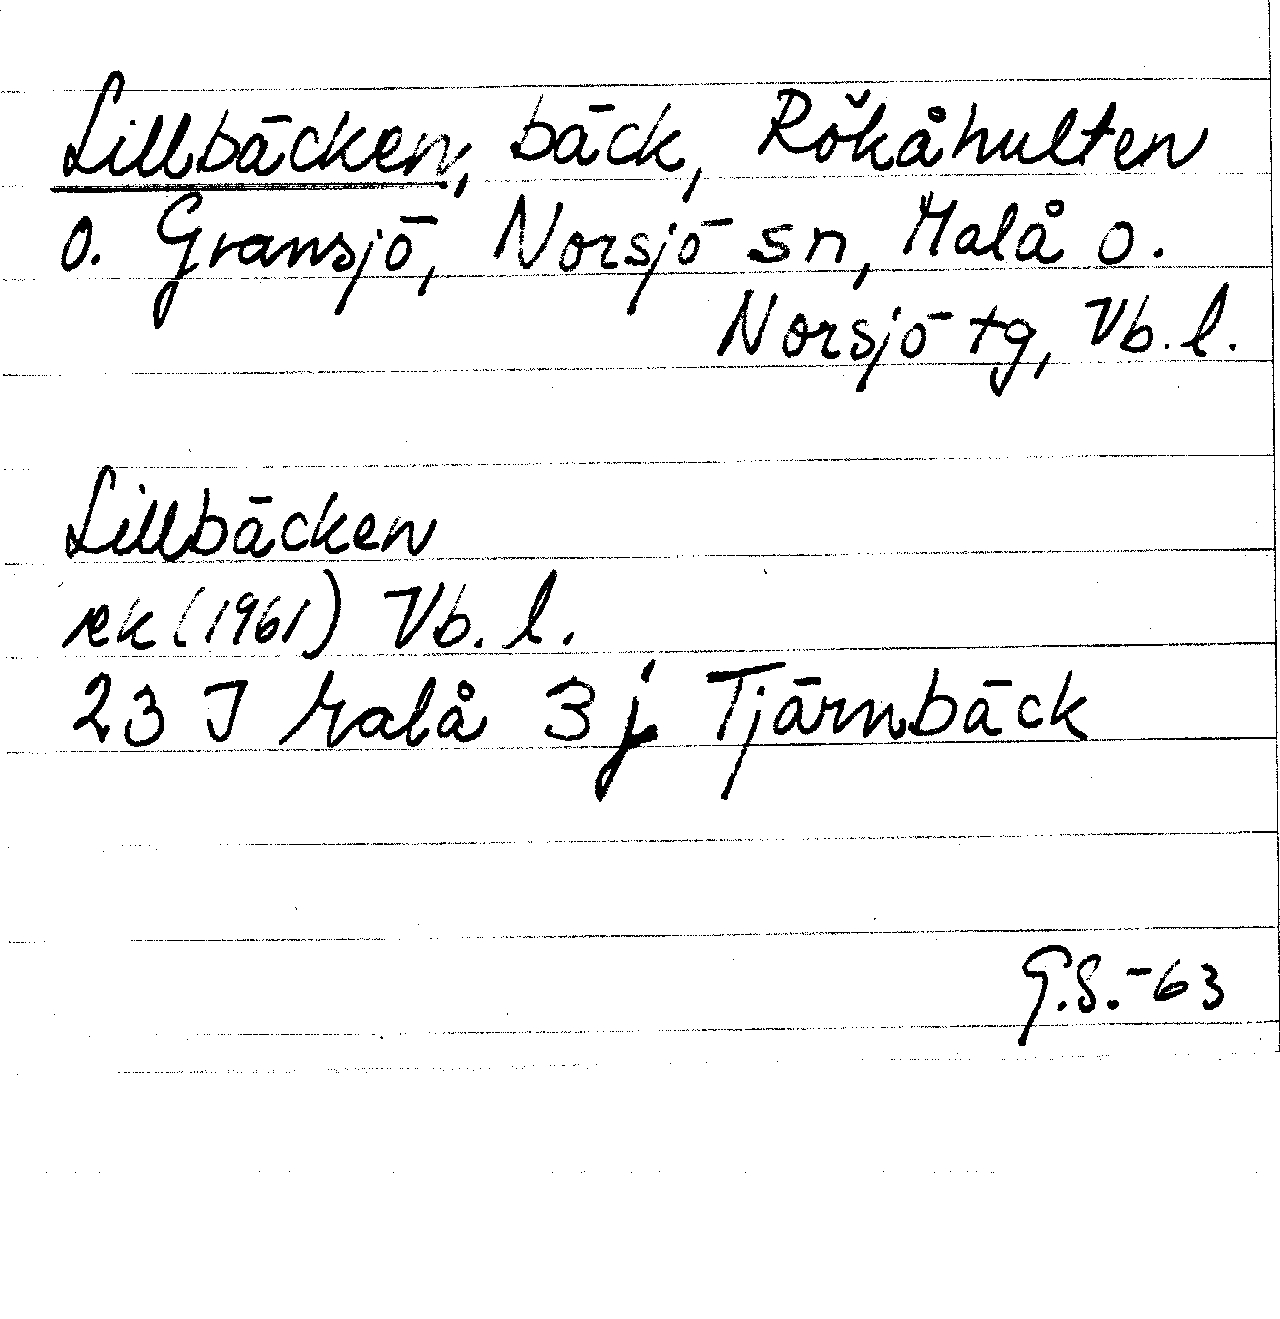 Lillbäcken, bäck, Rökåhulten
o. Gransjö, Norsjö sn, Malå o.
Norsjö tg, Vb. l.
Lillbäcken
ek (1961) Vb. l.
23 J Malå 3 j Tjärnbäck
G.S.-63